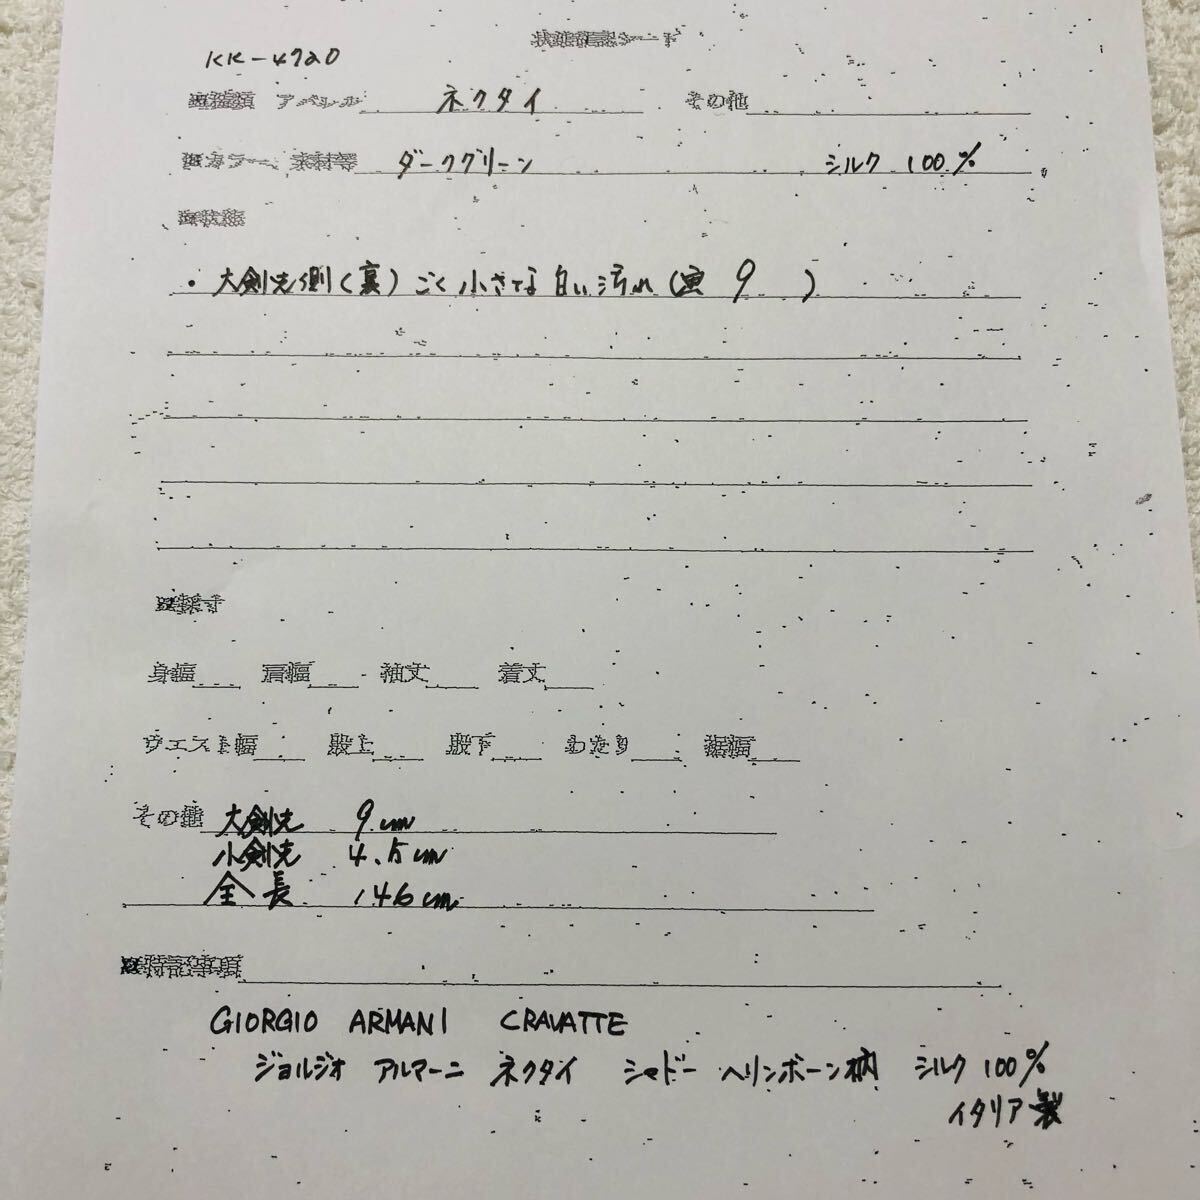 状態確認シート
KK-4720
種類 アパレル ネクタイ その他
カラー、素材等 ダークグリーン シルク 100%
※状態
・大剣先側(裏)ごく小さな白い汚れ(画 9 )
※採寸
身幅 肩幅 袖丈 着丈
ウエスト幅 股上 股下 わたり 裾幅
その他 大剣先 9cm
小剣先 4.5cm
全長 146cm
※特記事項
GIORGIO ARMANI CRAVATTE
ジョルジオ アルマーニ ネクタイ シャドー ヘリンボーン柄 シルク 100%
イタリア製